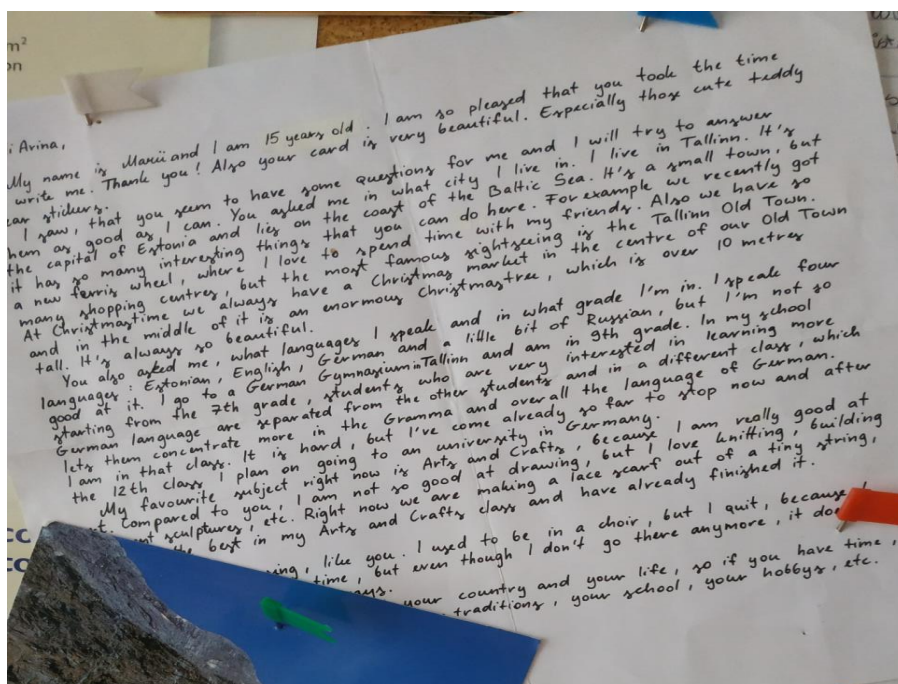 m²
on
i Arina,
My name is Marii and I am 15 years old. I am so pleased that you took the time
write me. Thank you! Also your card is very beautiful. Especially those cute teddy
ear stickers.
I saw, that you seem to have some questions for me and I will try to answer
hem as good as I can. You asked me in what city I live in. I live in Tallinn. It's
the capital of Estonia and lies on the coast of the Baltic Sea. It's a small town, but
it has so many interesting things that you can do here. For example we recently got
a new ferris wheel, where I love to spend time with my friends. Also we have so
many shopping centres, but the most famous sightseeing is the Tallinn Old Town.
At Christmastime we always have a Christmas market in the centre of our Old Town
and in the middle of it is an enormous Christmastree, which is over 10 metres
tall. It's always so beautiful.
You also asked me, what languages I speak and in what grade I'm in. I speak four
languages: Estonian, English, German and a little bit of Russian, but I'm not so
good at it. I go to a German Gymnasium in Tallinn and am in 9th grade. In my school
starting from the 7th grade, students who are very interested in learning more
German language are separated from the other students and in a different class, which
lets them concentrate more in the Gramma and overall the language of German.
I am in that class. It is hard, but I've come already so far to stop now and after
the 12th class I plan on going to an university in Germany.
My favourite subject right now is Arts and Crafts, because I am really good at
it. Compared to you, I am not so good at drawing, but I love knitting, building
sculptures, etc. Right now we are making a lace scarf out of a tiny string,
best in my Arts and Crafts class and have already finished it.
ing, like you. I used to be in a choir, but I quit, because
time, but even though I don't go there anymore, it doe
ays.
your country and your life, so if you have time,
traditions, your school, your hobbys, etc.